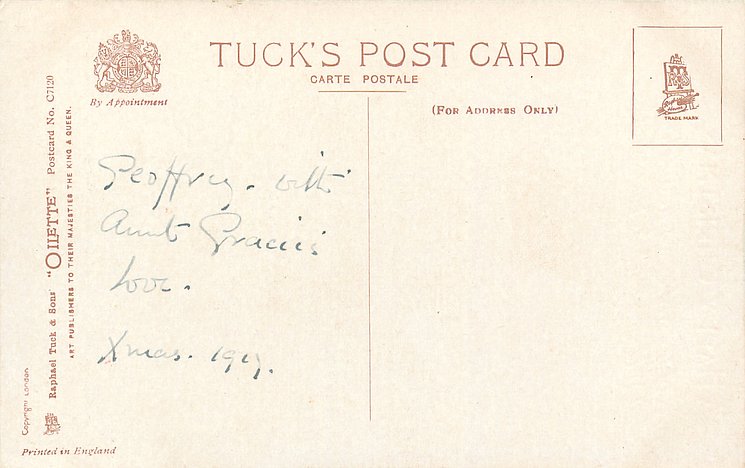 TUCK'S POST CARD
CARTE POSTALE
By Appointment
(FOR ADDRESS ONLY)
TRADE MARK
Geoffrey. with
Aunt Gracie's
love.
Xmas. 1917.
Raphael Tuck & Sons' "OILETTE" Postcard No. C7120
ART PUBLISHERS TO THEIR MAJESTIES THE KING & QUEEN.
Copyright London
Printed in England